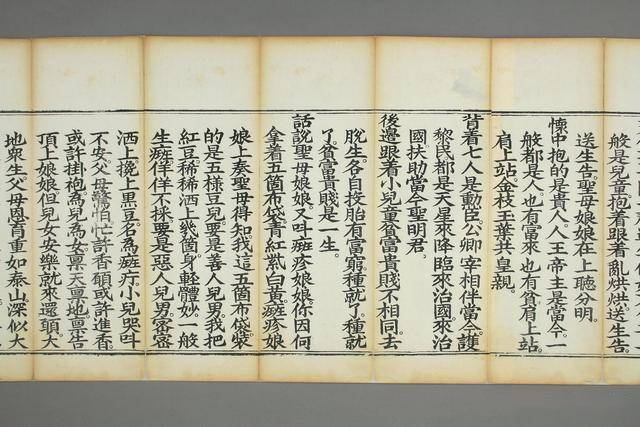 般是兒童抱着跟着亂烘烘送生告。
送生告。聖母娘娘在上聽分明。
懷中抱的是貴人。人王帝主是當今。一
般都是人。也有富來也有貧。肩上站。
肩上站。金枝玉葉共皇親。
背着七人是勳臣。公卿宰相伴當今。護
黎民都是天星來降臨。來治國來治
國。扶助當今聖明君。
後邊跟着小兒童。貧富貴賤不相同。去
脫生。各自投胎有富窮。種就了。種就
了。貧富貴賤是一生。
話說聖母娘娘。又叫癍疹娘娘。你因何
拿着五箇布袋。青紅紫白黃。癍疹娘
娘上奏。聖母得知。我這五箇布袋裝
的是五樣豆兒。要是善人兒男。我把
紅豆稀稀洒上幾箇。身輕體妙。一般
生癍。佯佯不採。要是惡人兒男。密密
洒上。攪上黑豆。名為癍疔。小兒哭叫
不安。父母驚怕。忙許香願。或許進香
或許掛袍。為兒為女。禀天禀地。禀告
頂上娘娘。但兒女安樂。就來還願。大
地衆生。父母恩育。重如泰山。深似大